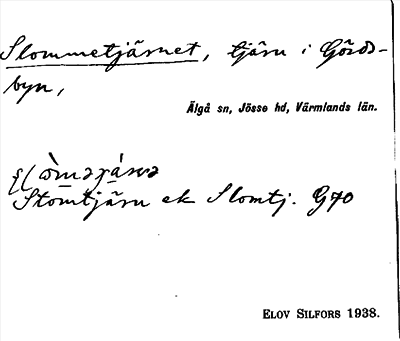 Slommetjärnet, tjärn i Gårds-
byn,
Älgå sn, Jösse hd, Värmlands län.
Stomtjärn ek Slomtj. G70
ELOV SILFORS 1938.